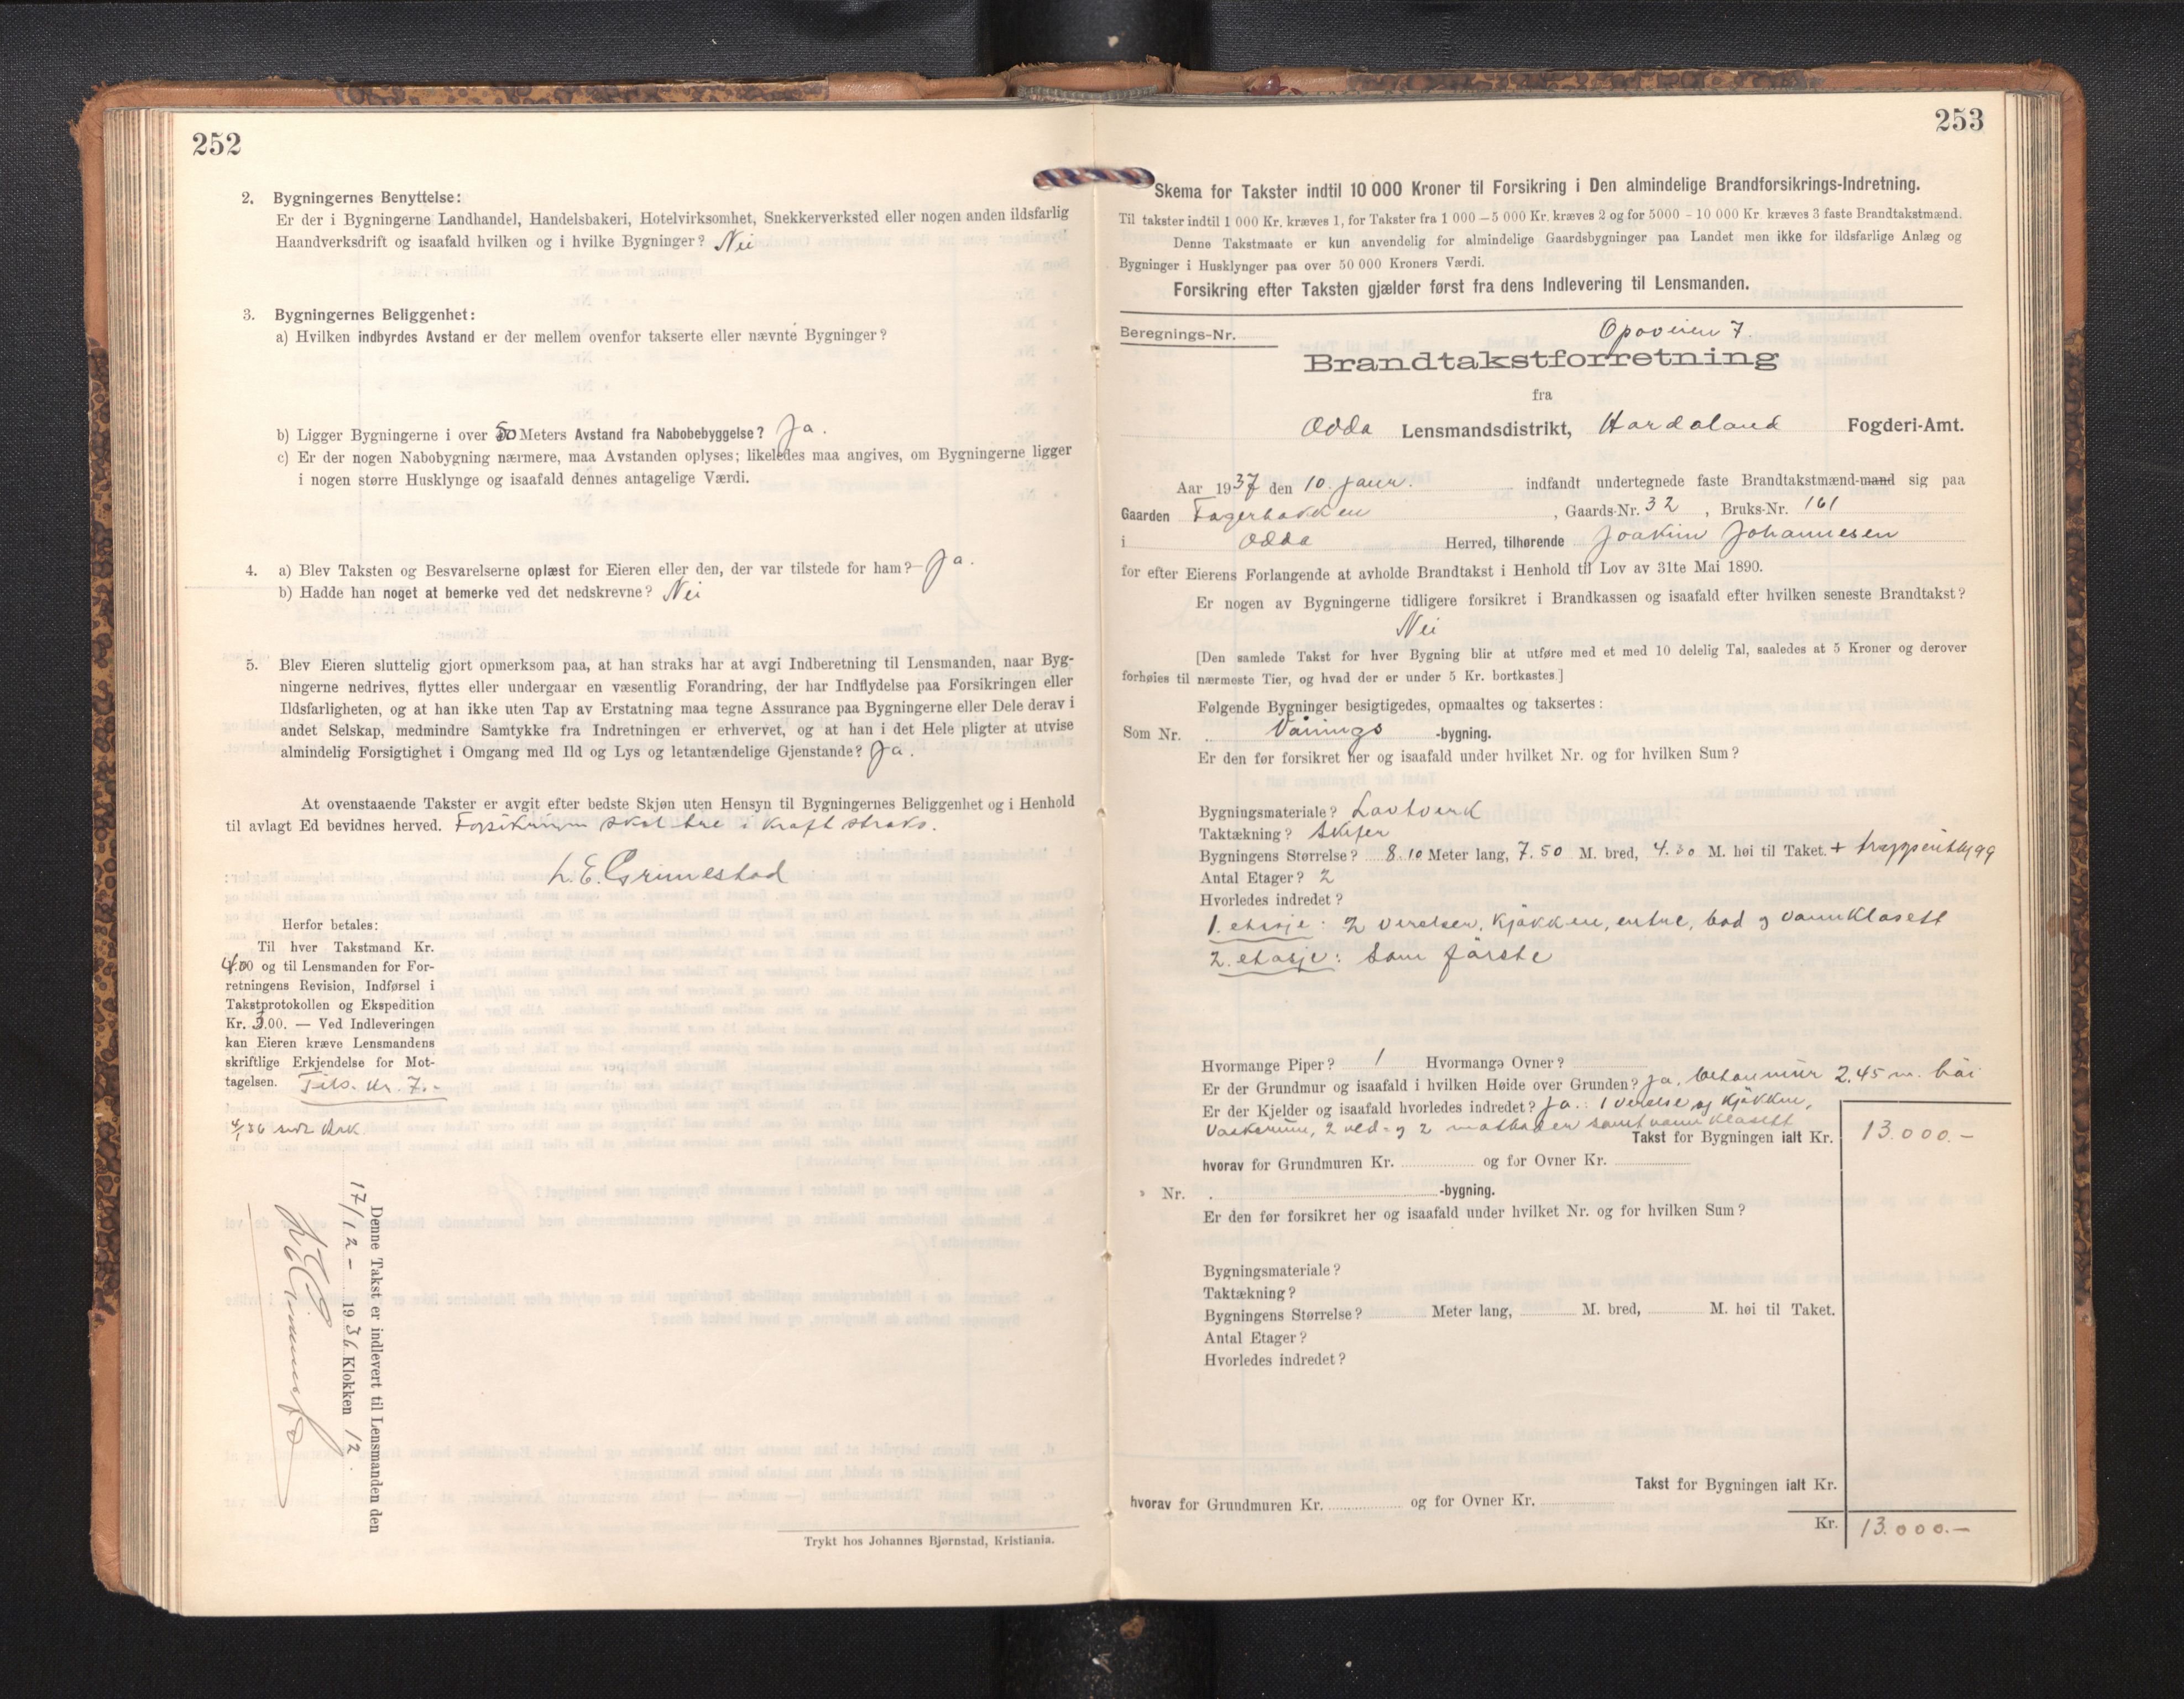 252
2. Bygningernes Benyttelse:
Er der i Bygningerne Landhandel, Handelsbakeri, Hotelvirksomhet, Snekkerverksted eller nogen anden ildsfarlig
Haandverksdrift og isaafald hvilken og i hvilke Bygninger? Nei
3. Bygningernes Beliggenhet:
a) Hvilken indbyrdes Avstand er der mellem ovenfor takserte eller nævnte Bygninger?
b) Ligger Bygningerne i over 50 Meters Avstand fra Nabobebyggelse? Ja.
c) Er der nogen Nabobygning nærmere, maa Avstanden oplyses; likeledes maa angives, om Bygningerne ligger
i nogen større Husklynge og isaafald dennes antagelige Værdi.
4. a) Blev Taksten og Besvarelserne oplæst for Eieren eller den, der var tilstede for ham? Ja.
b) Hadde han noget at bemerke ved det nedskrevne? Nei
5. Blev Eieren sluttelig gjort opmerksom paa, at han straks har at avgi Indberetning til Lensmanden, naar Byg-
ningerne nedrives, flyttes eller undergaar en væsentlig Forandring, der har Indflydelse paa Forsikringen eller
Ildsfarligheten, og at han ikke uten Tap av Erstatning maa tegne Assurance paa Bygningerne eller Dele derav i
andet Selskap, medmindre Samtykke fra Indretningen er erhvervet, og at han i det Hele pligter at utvise
almindelig Forsigtighet i Omgang med Ild og Lys og letantændelige Gjenstande? Ja.
At ovenstaaende Takster er avgit efter bedste Skjøn uten Hensyn til Bygningernes Beliggenhet og i Henhold
til avlagt Ed bevidnes herved. Forsikringen skal tre i kraft straks.
L. E. Grimestad
Herfor betales:
Til hver Takstmand Kr.
4.00 og til Lensmanden for For-
retningens Revision, Indførsel i
Takstprotokollen og Ekspedition
Kr. 3.00. — Ved Indleveringen
kan Eieren kræve Lensmandens
skriftlige Erkjendelse for Mot-
tagelsen. Tils. kr. 7.-
Denne Takst er indlevert til Lensmanden den
17/12 - 1936 Klokken 12.
Trykt hos Johannes Bjørnstad, Kristiania.
253
Skema for Takster indtil 10 000 Kroner til Forsikring i Den almindelige Brandforsikrings-Indretning.
Til takster indtil 1 000 Kr. kræves 1, for Takster fra 1 000 — 5 000 Kr. kræves 2 og for 5000 - 10 000 Kr. kræves 3 faste Brandtakstmænd.
Denne Takstmaate er kun anvendelig for almindelige Gaardsbygninger paa Landet men ikke for ildsfarlige Anlæg og
Bygninger i Husklynger paa over 50 000 Kroners Værdi.
Forsikring efter Taksten gjælder først fra dens Indlevering til Lensmanden.
Beregnings-Nr. Opoveien 7.
Brandtakstforretning
fra
Odda Lensmandsdistrikt, Hordaland Fogderi-Amt.
Aar 1937 den 10. janr. indfandt undertegnede faste Brandtakstmænd-mand sig paa
Gaarden Fagerbakken, Gaards-Nr. 32, Bruks-Nr. 161
i Odda Herred, tilhørende Joakim Johannesen
for efter Eierens Forlangende at avholde Brandtakst i Henhold til Lov av 31te Mai 1890.
Er nogen av Bygningerne tidligere forsikret i Brandkassen og isaafald efter hvilken seneste Brandtakst?
Nei
[Den samlede Takst for hver Bygning blir at utføre med et med 10 delelig Tal, saaledes at 5 Kroner og derover
forhøies til nærmeste Tier, og hvad der er under 5 Kr. bortkastes.]
Følgende Bygninger besigtigedes, opmaaltes og taksertes:
Som Nr. Vånings -bygning.
Er den før forsikret her og isaafald under hvilket Nr. og for hvilken Sum?
Bygningsmateriale? Lavtverk
Taktækning? Skifer
Bygningens Størrelse? 8.10 Meter lang, 7.50 M. bred, 4.30 M. høi til Taket. + trappeutbygg
Antal Etager? 2
Hvorledes indredet?
1. etasje: 2 værelser, kjøkken, entre, bad og vannklosett
2. etasje: Som første
Hvormange Piper? 1 Hvormange Ovner?
Er der Grundmur og isaafald i hvilken Høide over Grunden? Ja, betonmur 2.45 m. høi
Er der Kjelder og isaafald hvorledes indredet? Ja.: 1 værelse og kjøkken,
Vaskerum, 2 ved- og 2 matboder samt vann klosett
Takst for Bygningen ialt Kr. 13.000.-
hvorav for Grundmuren Kr. og for Ovner Kr.
» Nr. -bygning.
Er den før forsikret her og isaafald under hvilket Nr. og for hvilken Sum?
Bygningsmateriale?
Taktækning?
Bygningens Størrelse? Meter lang, M. bred, M. høi til Taket.
Antal Etager?
Hvorledes indredet?
Takst for Bygningen ialt Kr.
hvorav for Grundmuren Kr. og for Ovner Kr.
Kr. 13.000.-